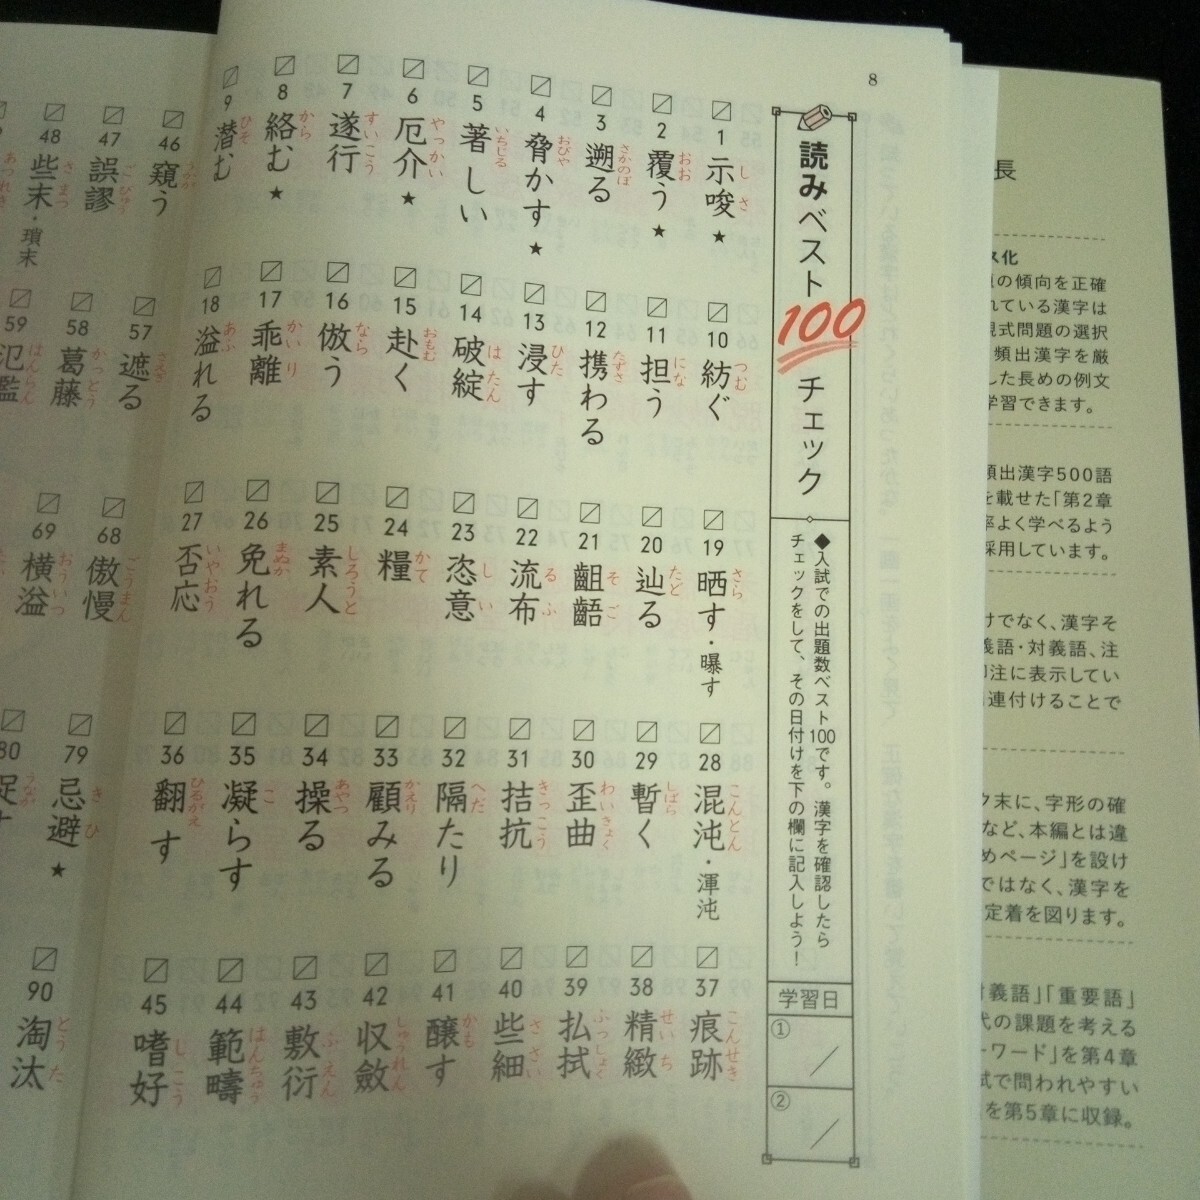 8
読みベスト100チェック
◆入試での出題数ベスト100です。漢字を確認したら
チェックをして、その日付けを下の欄に記入しよう！
学習日
①／
②／
1 示唆 しさ ★
2 覆う おお ★
3 遡る さかのぼ
4 脅かす おびや ★
5 著しい いちじる
6 厄介 やっかい ★
7 遂行 すいこう
8 絡む から ★
9 潜む ひそ
10 紡ぐ つむ
11 担う にな
12 携わる たずさ
13 浸す ひた
14 破綻 はたん
15 赴く おもむ
16 倣う なら
17 乖離 かいり
18 溢れる あふ
19 晒す・曝す さら
20 辿る たど
21 齟齬 そご
22 流布 るふ
23 恣意 しい
24 糧 かて
25 素人 しろうと
26 免れる まぬか
27 否応 いやおう
28 混沌・渾沌 こんとん
29 暫く しばら
30 歪曲 わいきょく
31 拮抗 きっこう
32 隔たり へだ
33 顧みる かえり
34 操る あやつ
35 凝らす こ
36 翻す ひるがえ
37 痕跡 こんせき
38 精緻 せいち
39 払拭 ふっしょく
40 些細 ささい
41 醸す かも
42 収斂 しゅうれん
43 敷衍 ふえん
44 範疇 はんちゅう
45 嗜好 しこう
46 窺う うかが
47 誤謬 ごびゅう
48 些末・瑣末 さまつ
57 遮る さえぎ
58 葛藤 かっとう
59 氾濫 はんらん
68 傲慢 ごうまん
69 横溢 おういつ
79 忌避 きひ ★
80
90 淘汰 とうた
長
ス化
の傾向を正確
れている漢字は
現式問題の選択
頻出漢字を厳
した長めの例文
学習できます。
頻出漢字500語
を載せた「第2章
率よく学べるよう
採用しています。
けでなく、漢字そ
義語・対義語、注
脚注に表示してい
連付けることで
ク末に、字形の確
など、本編とは違
めページ」を設け
ではなく、漢字を
定着を図ります。
対義語」「重要語」
代の課題を考える
ーワード」を第4章
試で問われやすい
を第5章に収録。